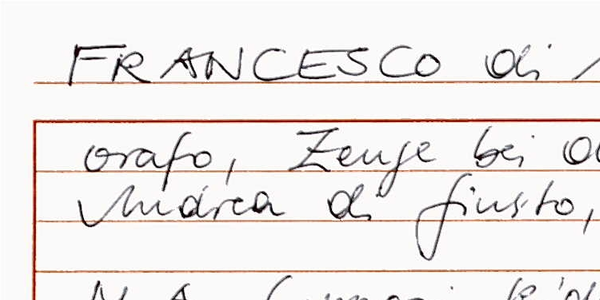 FRANCESCO di
orafo, Zeuge bei
Andrea di Giusto,